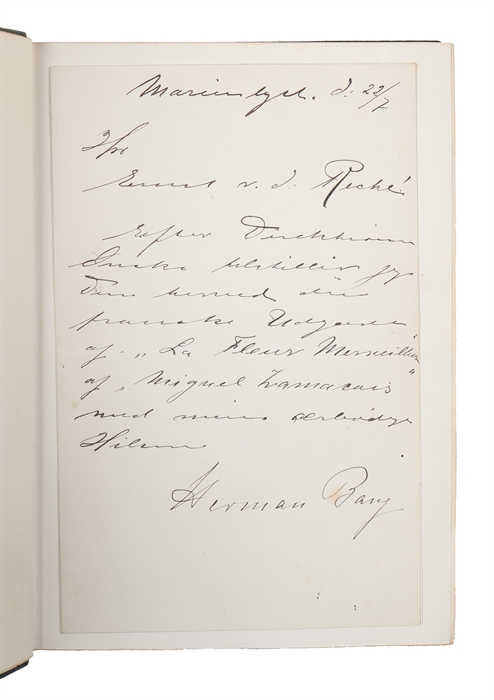 Marienlyst. d. 22/7
Hr
Ernst v. d. Recke.
Efter Direktionens
Ønske tilstiller jeg
Dem herved den
franske Udgave
af "La Fleur Merveilleuse"
af, Miguel Zamacois
med min ærbødige
Hilsen
Herman Bang